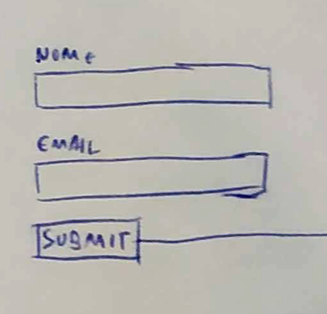 NOME
EMAIL
SUBMIT